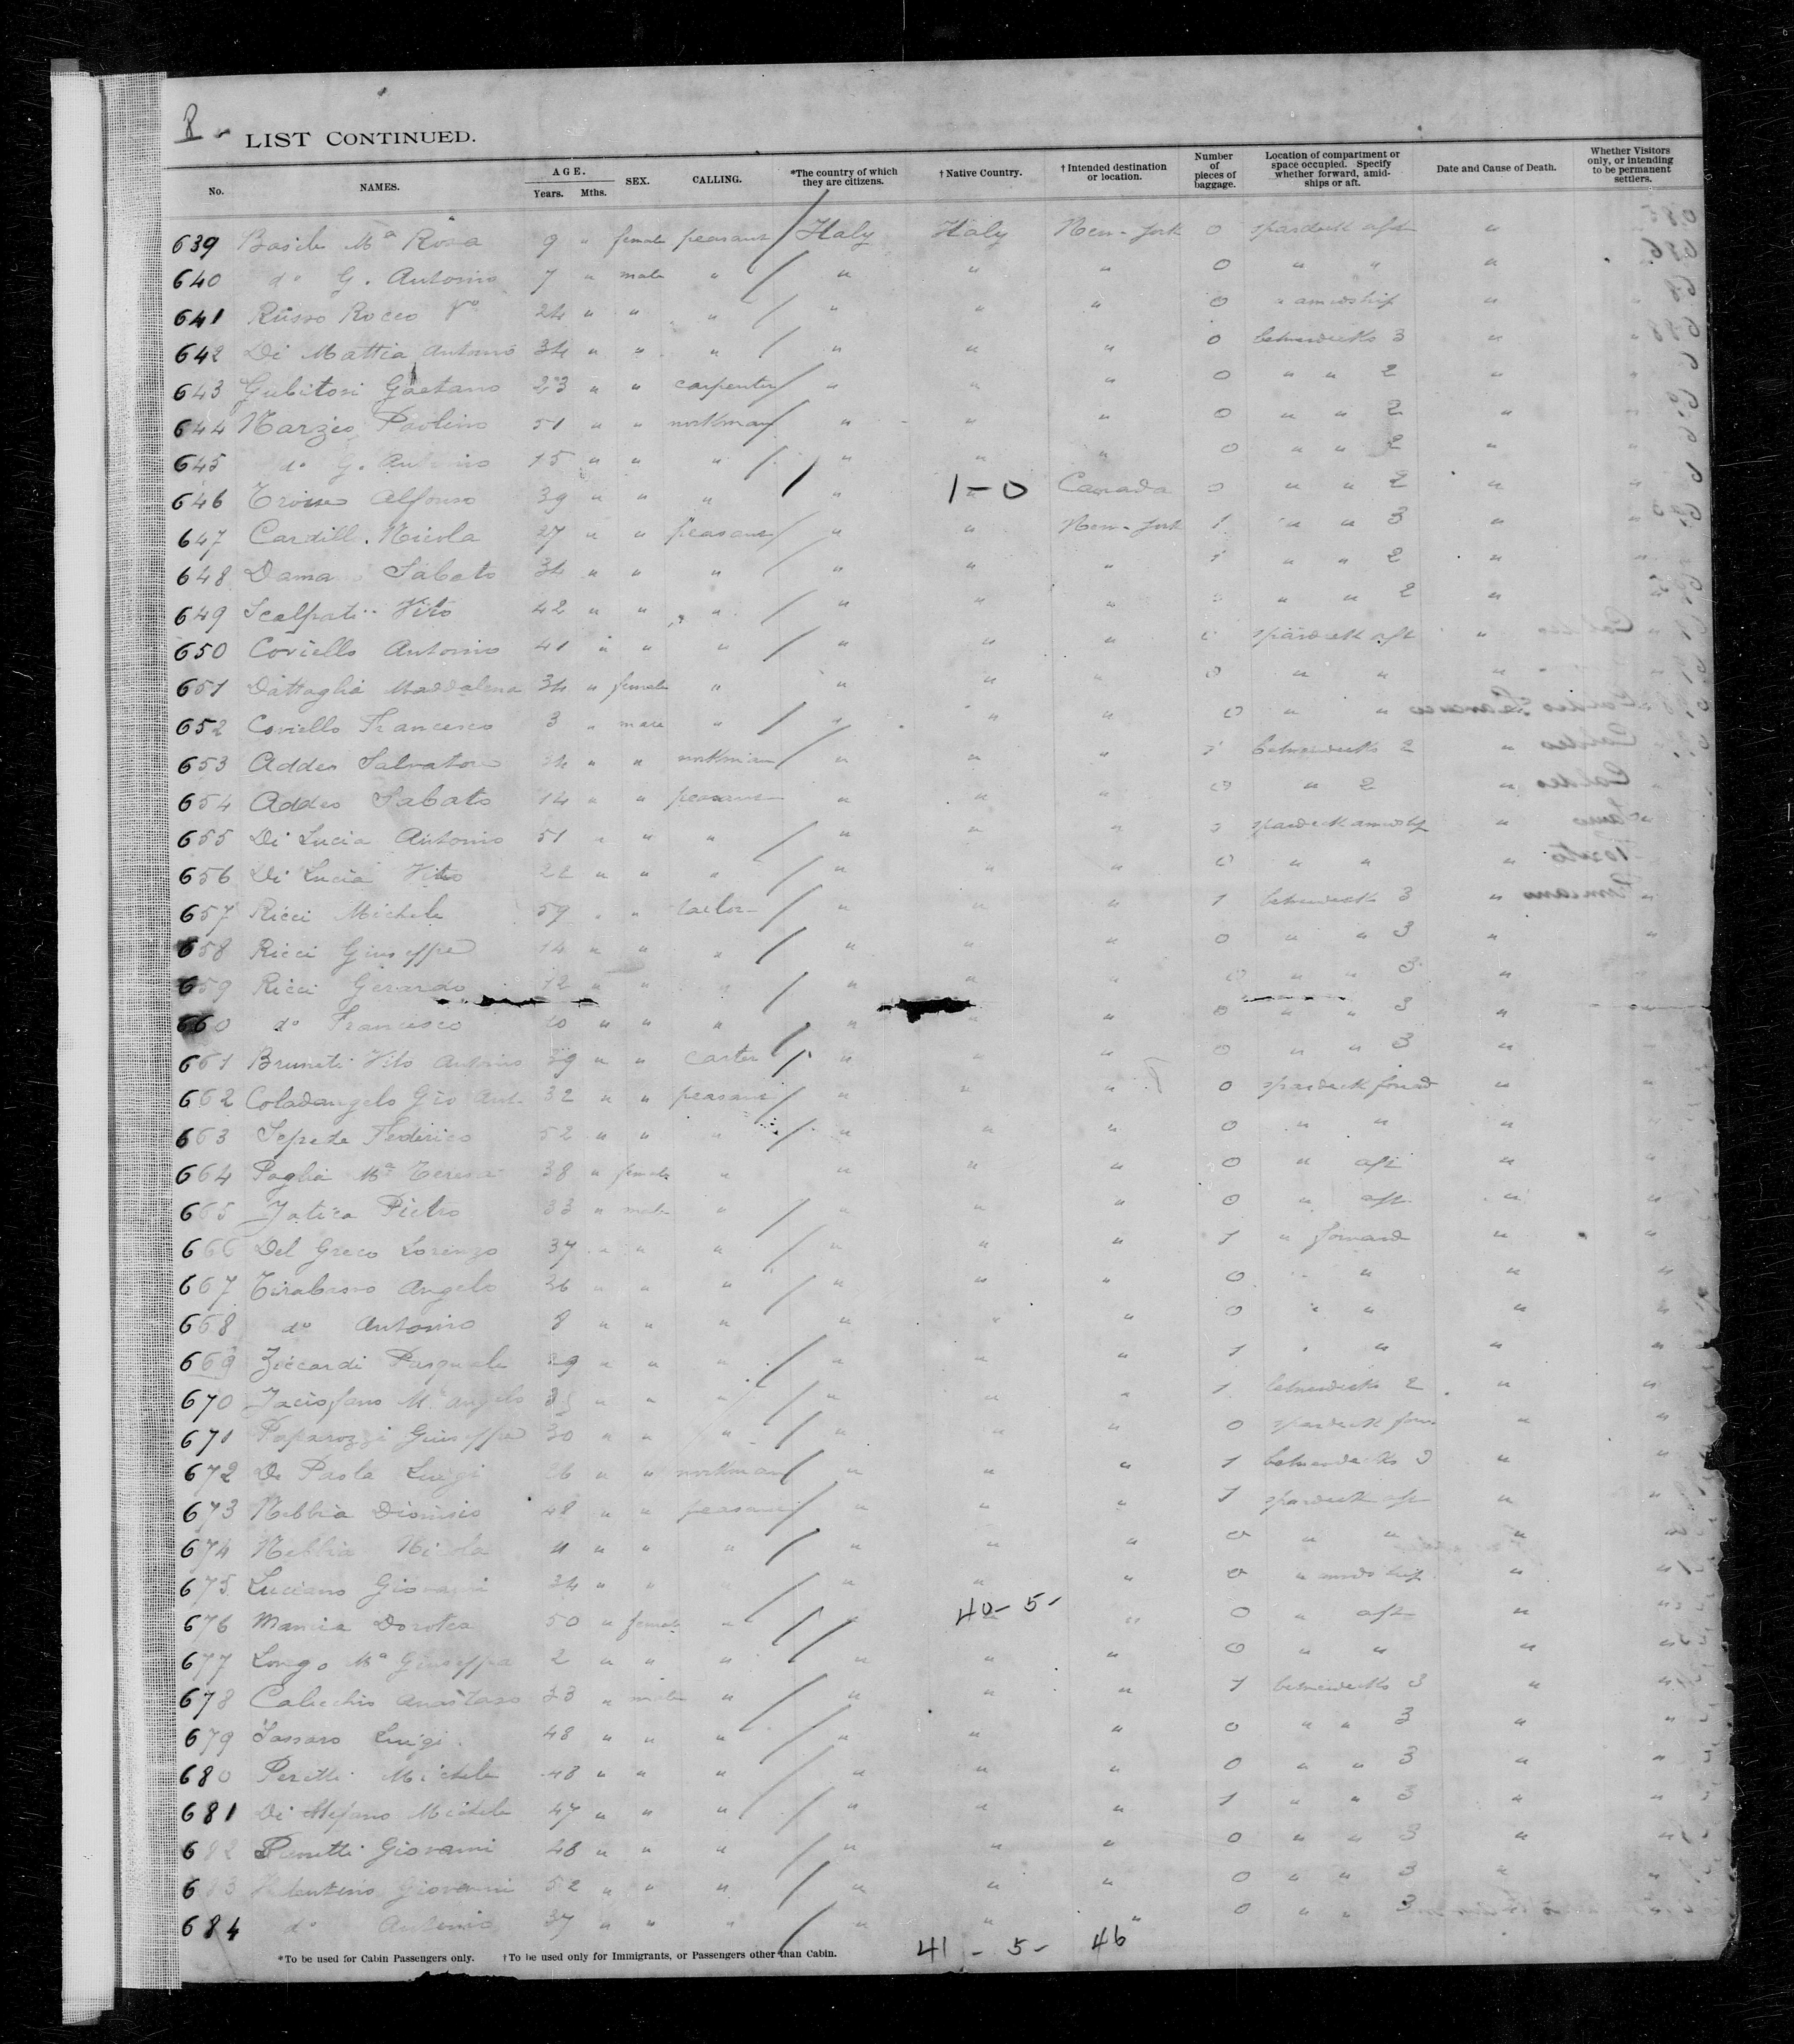 8-
LIST CONTINUED.
No. NAMES. AGE. Years. Mths. SEX. CALLING. *The country of which they are citizens. †Native Country. †Intended destination or location. Number of pieces of baggage. Location of compartment or space occupied. Specify whether forward, amidships or aft. Date and Cause of Death. Whether Visitors only, or intending to be permanent settlers.
639 Basile Mª Rosa 9 " female peasant / Italy Italy New-York 0 spardeck aft "
640 dº G. Antonio 7 " male " / " " " 0 " " "
641 Russo Rocco Vº 24 " " " / " " " 0 " amidship "
642 Di Mattia Antonio 34 " " " / " " " 0 betweendecks 3 "
643 Gubitosi Gaetano 23 " " carpenter / " " " 0 " " 2 "
644 Marzio Paolino 51 " " workman / " " " 0 " " 2 "
645 dº G. Antonio 15 " " " / " " " 0 " " 2 "
646 Troise Alfonso 39 " " " / " 1-0 Canada 0 " " 2 "
647 Cardillo Nicola 27 " " peasant / " " New-York 1 " " 3 "
648 Damano Sabato 34 " " " / " " " 1 " " 2 "
649 Scalpati Vito 42 " " " / " " " 0 " " 2 "
650 Coviello Antonio 41 " " " / " " " 0 spardeck aft "
651 Dattaglia Maddalena 34 " female " " " " 0 " " "
652 Coviello Francesco 3 " male " / " " " 0 " " "
653 Addeo Salvatore 34 " " workman / " " " 1 betweendecks 2 "
654 Addeo Sabato 14 " " peasant " " " 0 " 2 "
655 Di Lucia Antonio 51 " " " / " " " 0 spardeck amidship "
656 Di Lucia Vito 22 " " " / " " " 0 " " "
657 Ricci Michele 59 " " tailor / " " " 1 betweendecks 3 " "
658 Ricci Giuseppe 14 " " " / " " " 0 " " 3 " "
659 Ricci Gerardo 12 " " " / " " 0 " " 3 "
660 dº Francesco 10 " " " / " " " 0 " " 3 "
661 Bruneti Vito Antonio 29 " " carter / " " " 0 " " 3 "
662 Coladangelo Gio Ant. 32 " " peasant / " " " 0 spardeck forward " "
663 Sepede Federico 52 " " " / " " " 0 " " " "
664 Paglia Mª Teresa 38 " female " " " " 0 " aft " "
665 Jatica Pietro 33 " male " / " " " 0 " aft " "
666 Del Greco Lorenzo 37 " " " / " " " 1 " forward " "
667 Tirabasso Angelo 26 " " " / " " " 0 " " " "
668 dº Antonio 8 " " " " " " 0 " " " "
669 Ziccardi Pasquale 29 " " " / " " " 1 " " " "
670 Jaciofano M. Angelo " " " / " " " 1 betweendecks 2 " "
671 Paparozzi Giuseppe 30 " " " / " " " 0 spardeck forw. " "
672 De Paola Luigi 26 " " workman / " " " 1 betweendecks 3 " "
673 Nebbia Dionisio 48 " " peasant / " " " 1 spardeck aft " "
674 Nebbia Nicola 11 " " " / " " " 0 " " " "
675 Luciano Giovanni 34 " " / " " " 0 " amidship " "
676 Mancia Dorotea 50 " female " / " 40-5- " 0 " aft " "
677 Longo Mª Giuseppa 2 " " " / " " " 0 " " " "
678 Calicchio Anastasio 23 " male " / " " " 1 betweendecks 3 " "
679 Sassaro Luigi 48 " " " / " " " 0 " " 3 " "
680 Peretti Michele 43 " " " / " " " 0 " " 3 " "
681 Di Stefano Michele 47 " " " / " " " 1 " " 3 " "
682 Giovanni 48 " " " / " " " 0 " " 3 " "
683 Giovanni 52 " " " / " " " 0 " " 3 " "
684 dº Antonio 37 " " " / " " " 0 " " 3
41 - 5 - 46
*To be used for Cabin Passengers only. †To be used only for Immigrants, or Passengers other than Cabin.